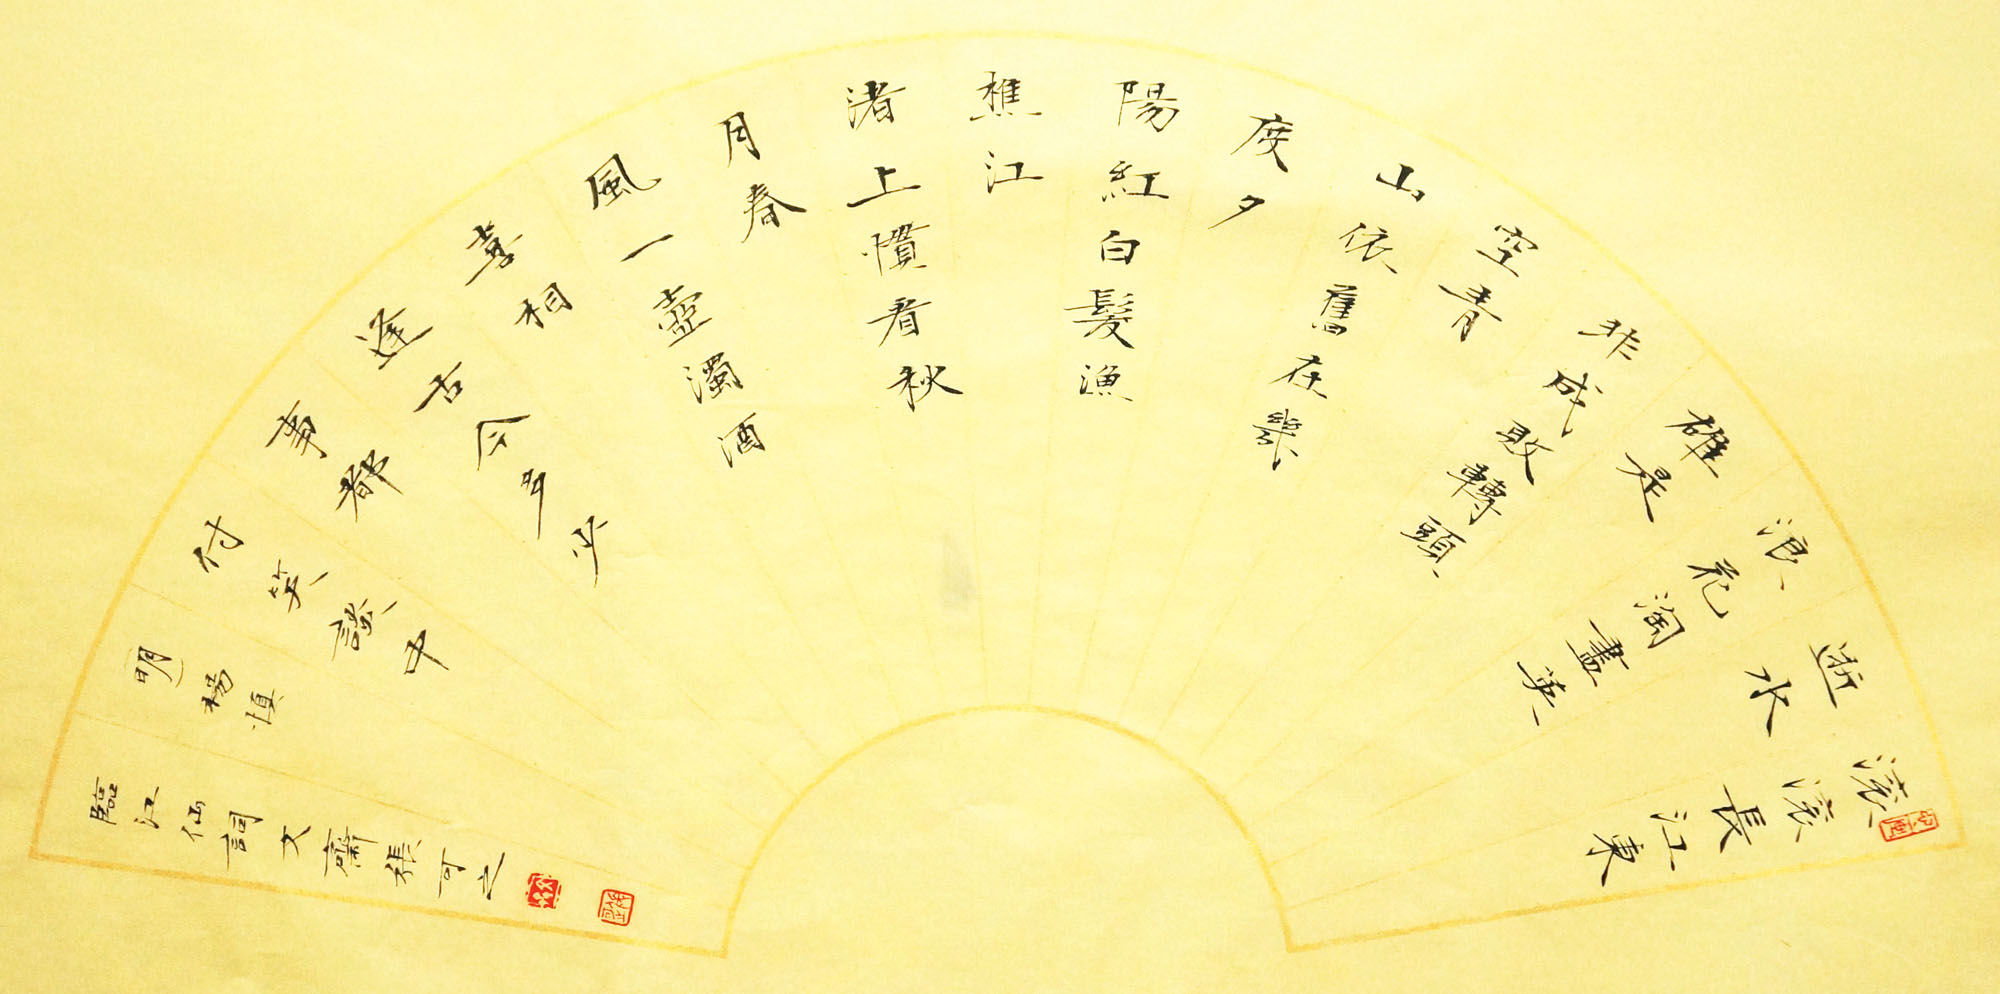 滚滚長江東
逝水
浪花淘盡英
雄是
非成敗轉頭
空青
山依舊在幾
度夕
陽紅白髮漁
樵江
渚上慣看秋
月春
風一壺濁酒
喜相
逢古今多少
事都
付笑談中
明楊慎
臨江仙詞文齋張可之